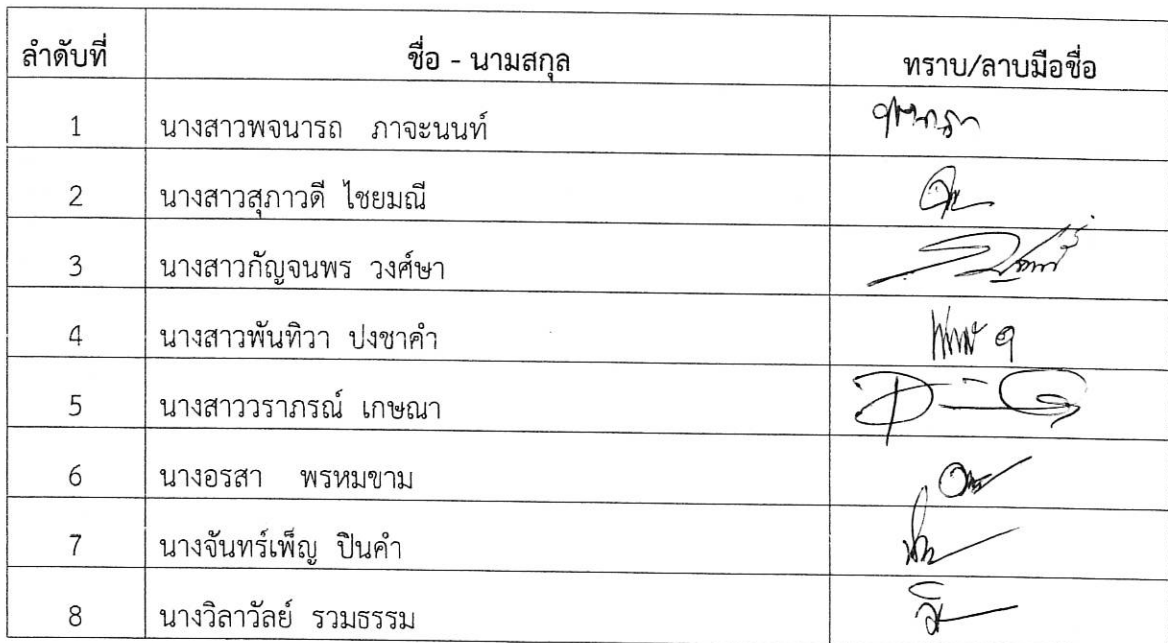 ลำดับที่ ชื่อ - นามสกุล ทราบ/ลาบมือชื่อ
1 นางสาวพจนารถ ภาจะนนท์
2 นางสาวสุภาวดี ไชยมณี
3 นางสาวกัญจนพร วงศ์ษา
4 นางสาวพันทิวา ปงชาคำ
5 นางสาววราภรณ์ เกษณา
6 นางอรสา พรหมขาม
7 นางจันทร์เพ็ญ ปินคำ
8 นางวิลาวัลย์ รวมธรรม